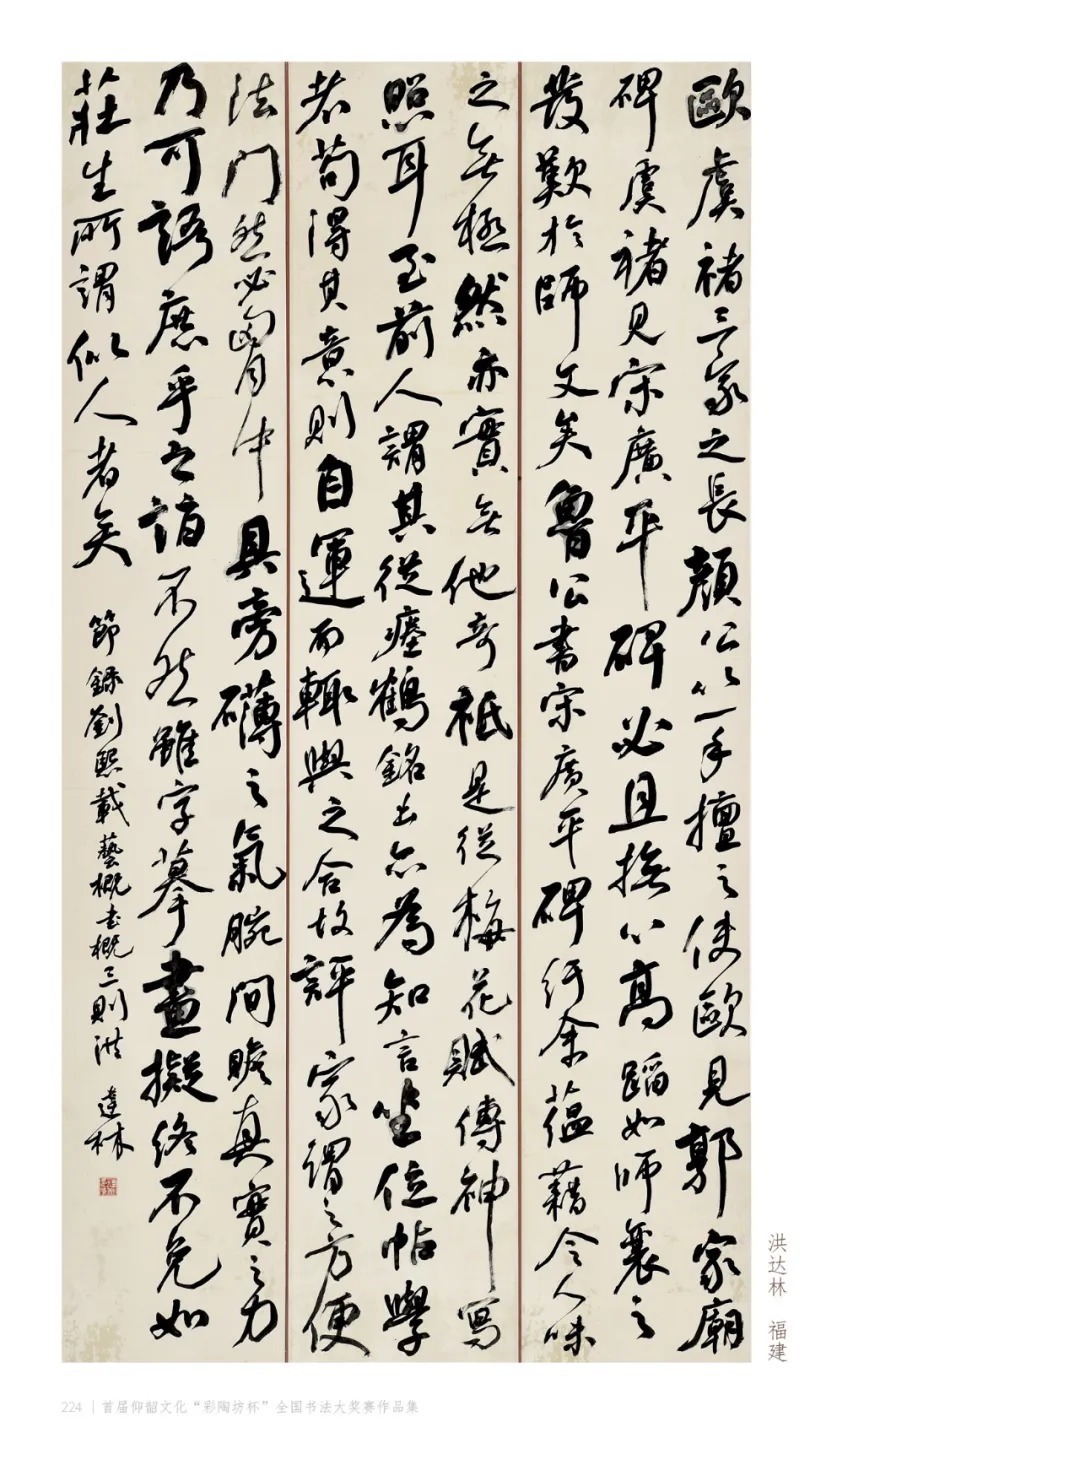 歐虞褚三家之長顏公以一手擅之使歐見郭家廟
碑虞褚見宋廣平碑必且撫心高蹈如師襄之
發歎於師文矣魯公書宋廣平碑紆余蘊藉令人味
之無極然亦實無他奇祇是從梅花賦傳神寫
照耳至前人謂其從瘞鶴銘出亦為知言坐位帖學
者苟得其意則自運而輒與之合故評家謂之方便
法门然必胸中具旁礴之氣腕间贍真實之力
乃可語庶乎之詣不然雖字摹畫擬終不免如
莊生所謂似人者矣
節錄劉熙載藝概書概三則洪達林
洪达林 福建
224 | 首届仰韶文化“彩陶坊杯”全国书法大奖赛作品集